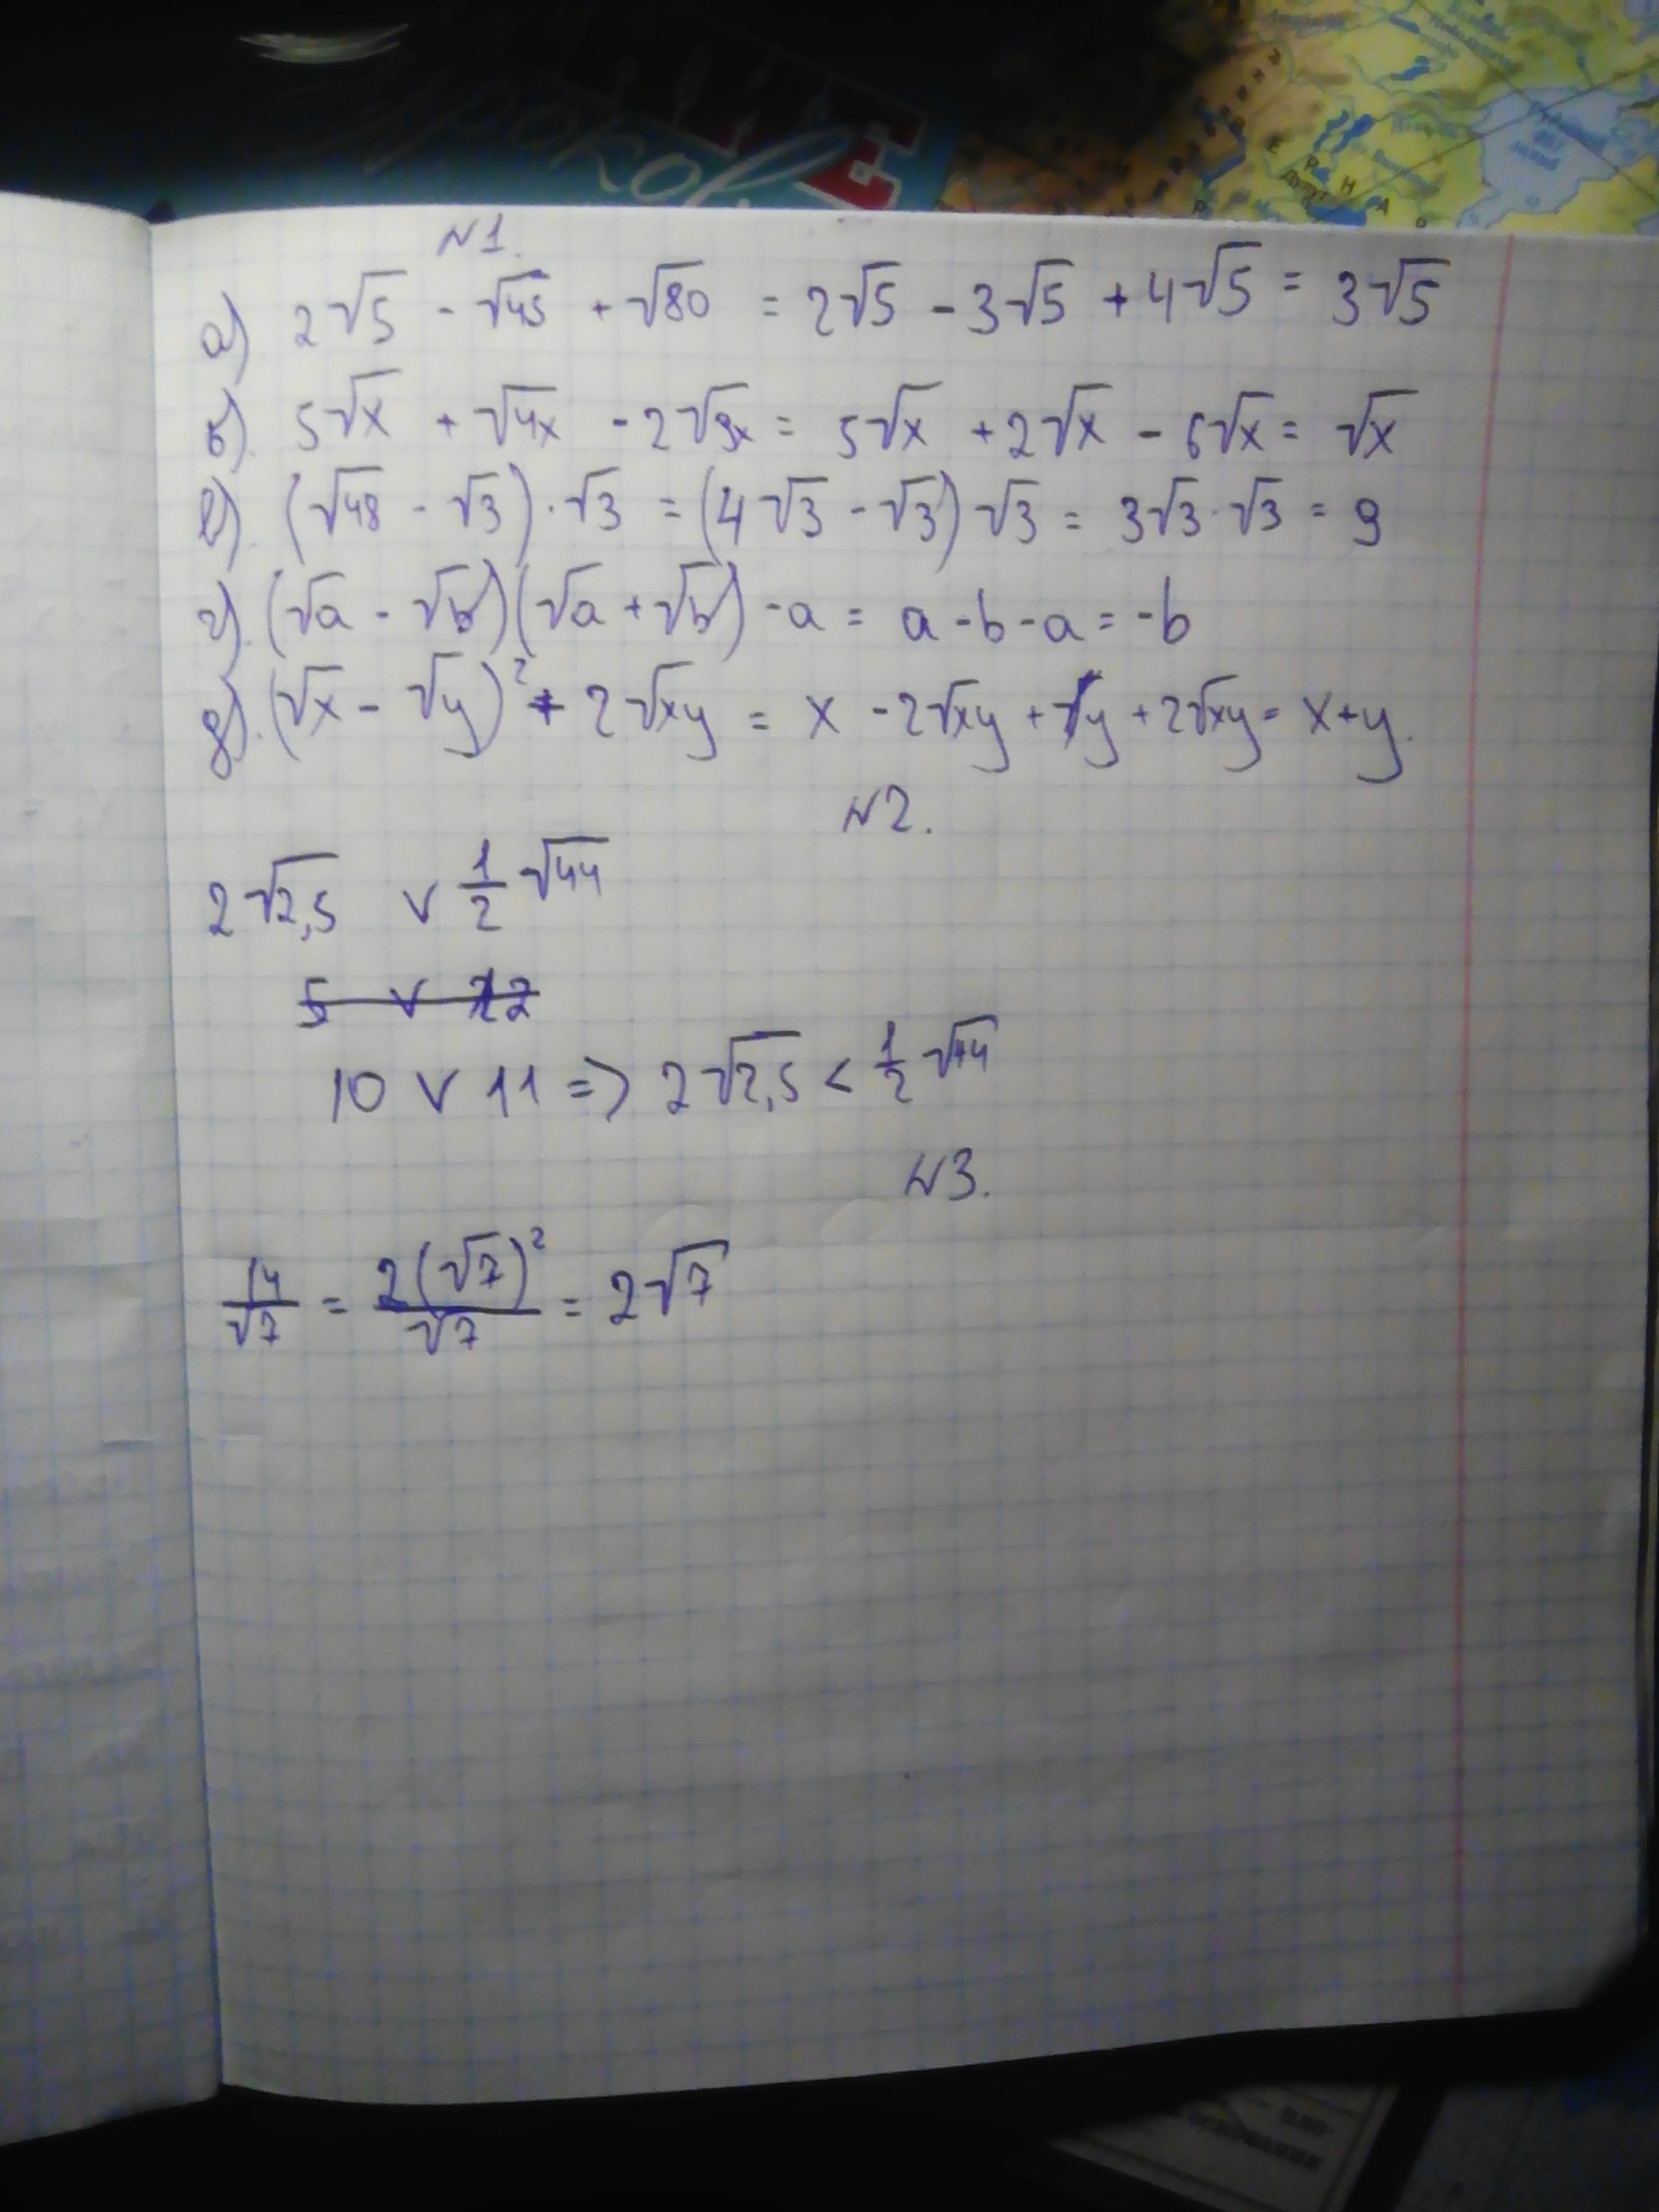 N1.
а). 2√5 - √45 + √80 = 2√5 - 3√5 + 4√5 = 3√5
б). 5√x + √4x - 2√9x = 5√x + 2√x - 6√x = √x
в). (√48 - √3)·√3 = (4√3 - √3)√3 = 3√3·√3 = 9
г). (√a - √b)(√a + √b) - a = a - b - a = -b
д). (√x - √y)² + 2√xy = x - 2√xy + y + 2√xy = x + y.
N2.
2√2,5 ∨ 1/2 √44
10 ∨ 11 => 2√2,5 < 1/2 √44
N3.
14/√7 = 2(√7)²/√7 = 2√7